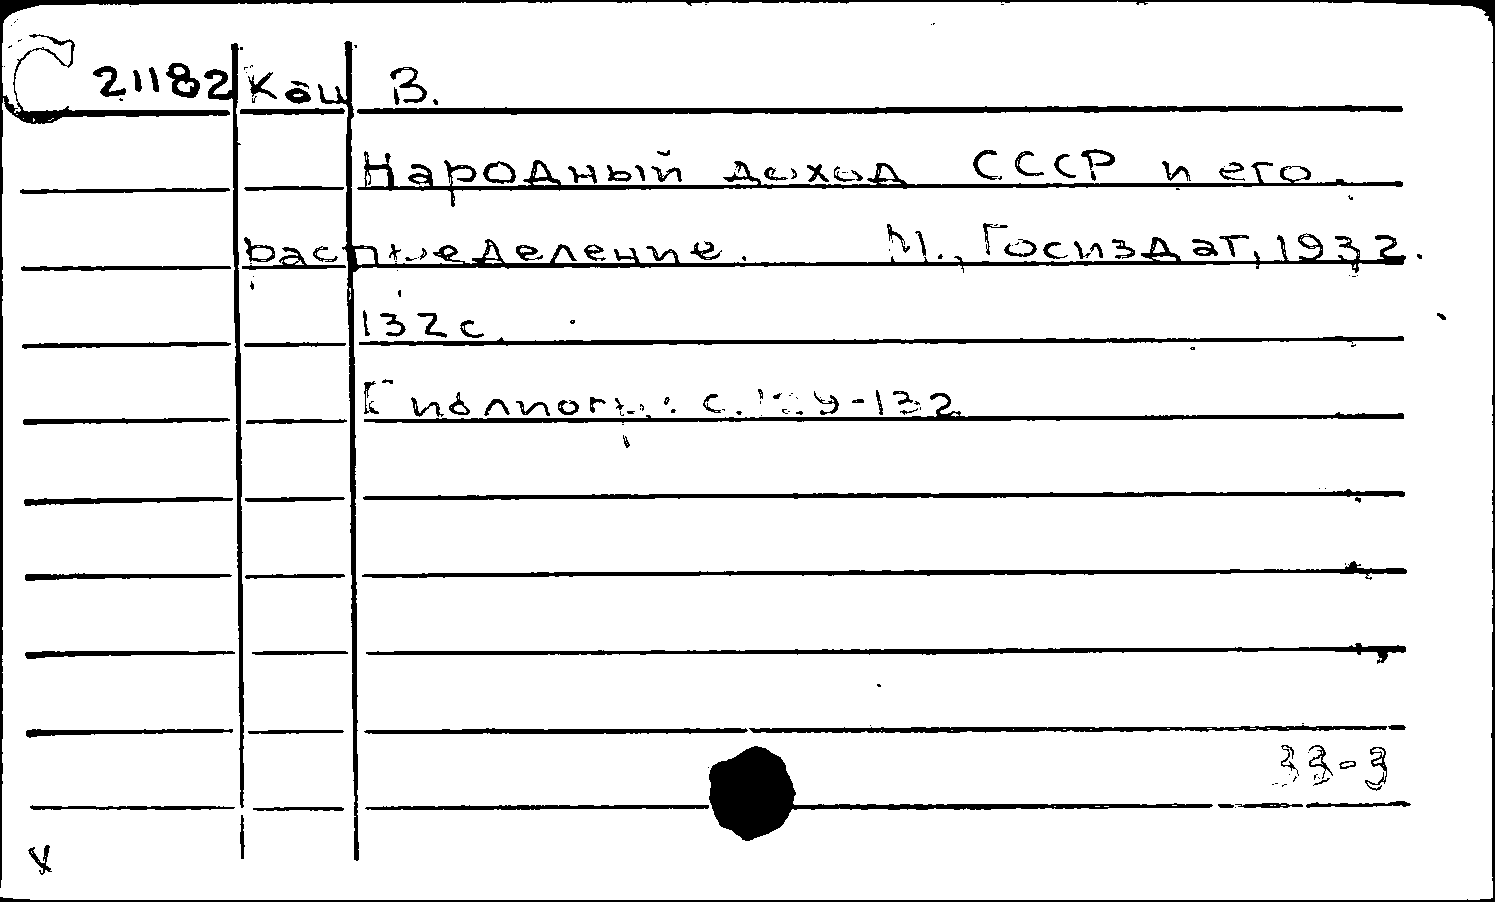 С 21182 Кац В.
Народный доход СССР и его
распределение. М., Госиздат, 1932.
132 с.
Библиогр.: с. 129-132
33-3